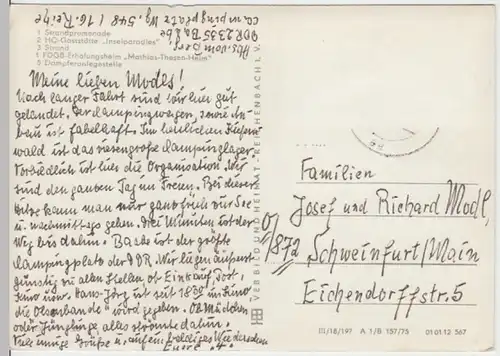 Abs. vom Berg
DDR 2235 Baabe
Campingplatz Wg. 548 / 16. Reihe
1 Strandpromenade
2 HO-Gaststätte „Inselparadies"
3 Strand
4 FDGB-Erholungsheim „Mathias-Thesen-Heim"
5 Dampferanlegestelle
Meine lieben Modls!
Nach langer Fahrt sind wir hier gut
gelandet. Der Campingwagen, sowie An-
bau ist fabelhaft. Im herrlichen Kiefern-
wald ist das riesengroße Campinglager.
Vorbildlich ist hier die Organisation. Wir
sind den ganzen Tag im Freien. Bei dieser
Hitze kann man nur ganz früh zur See
u. nachmittags gehen. Drei Minuten ist der
Weg bis dahin. Baabe ist der größte
Campingplatz der DDR. Wir liegen äußerst
günstig zu allen Stellen ob Einkauf, Post,
Kino usw. Hans-Jörg ist seit 18°° im Kino
die Olsenbande" wird gegeben. Ob Mädchen
oder Jünglinge alles strömte dahin.
Viele innige Grüße u. auf ein baldiges Wiedersehen
Eure 4.
VEB BILD UND HEIMAT REICHENBACH I. V.
Familien
Josef und Richard Modl,
872 Schweinfurt/Main
Eichendorffstr. 5
III/18/197 A 1/B 157/75 01 01 12 567